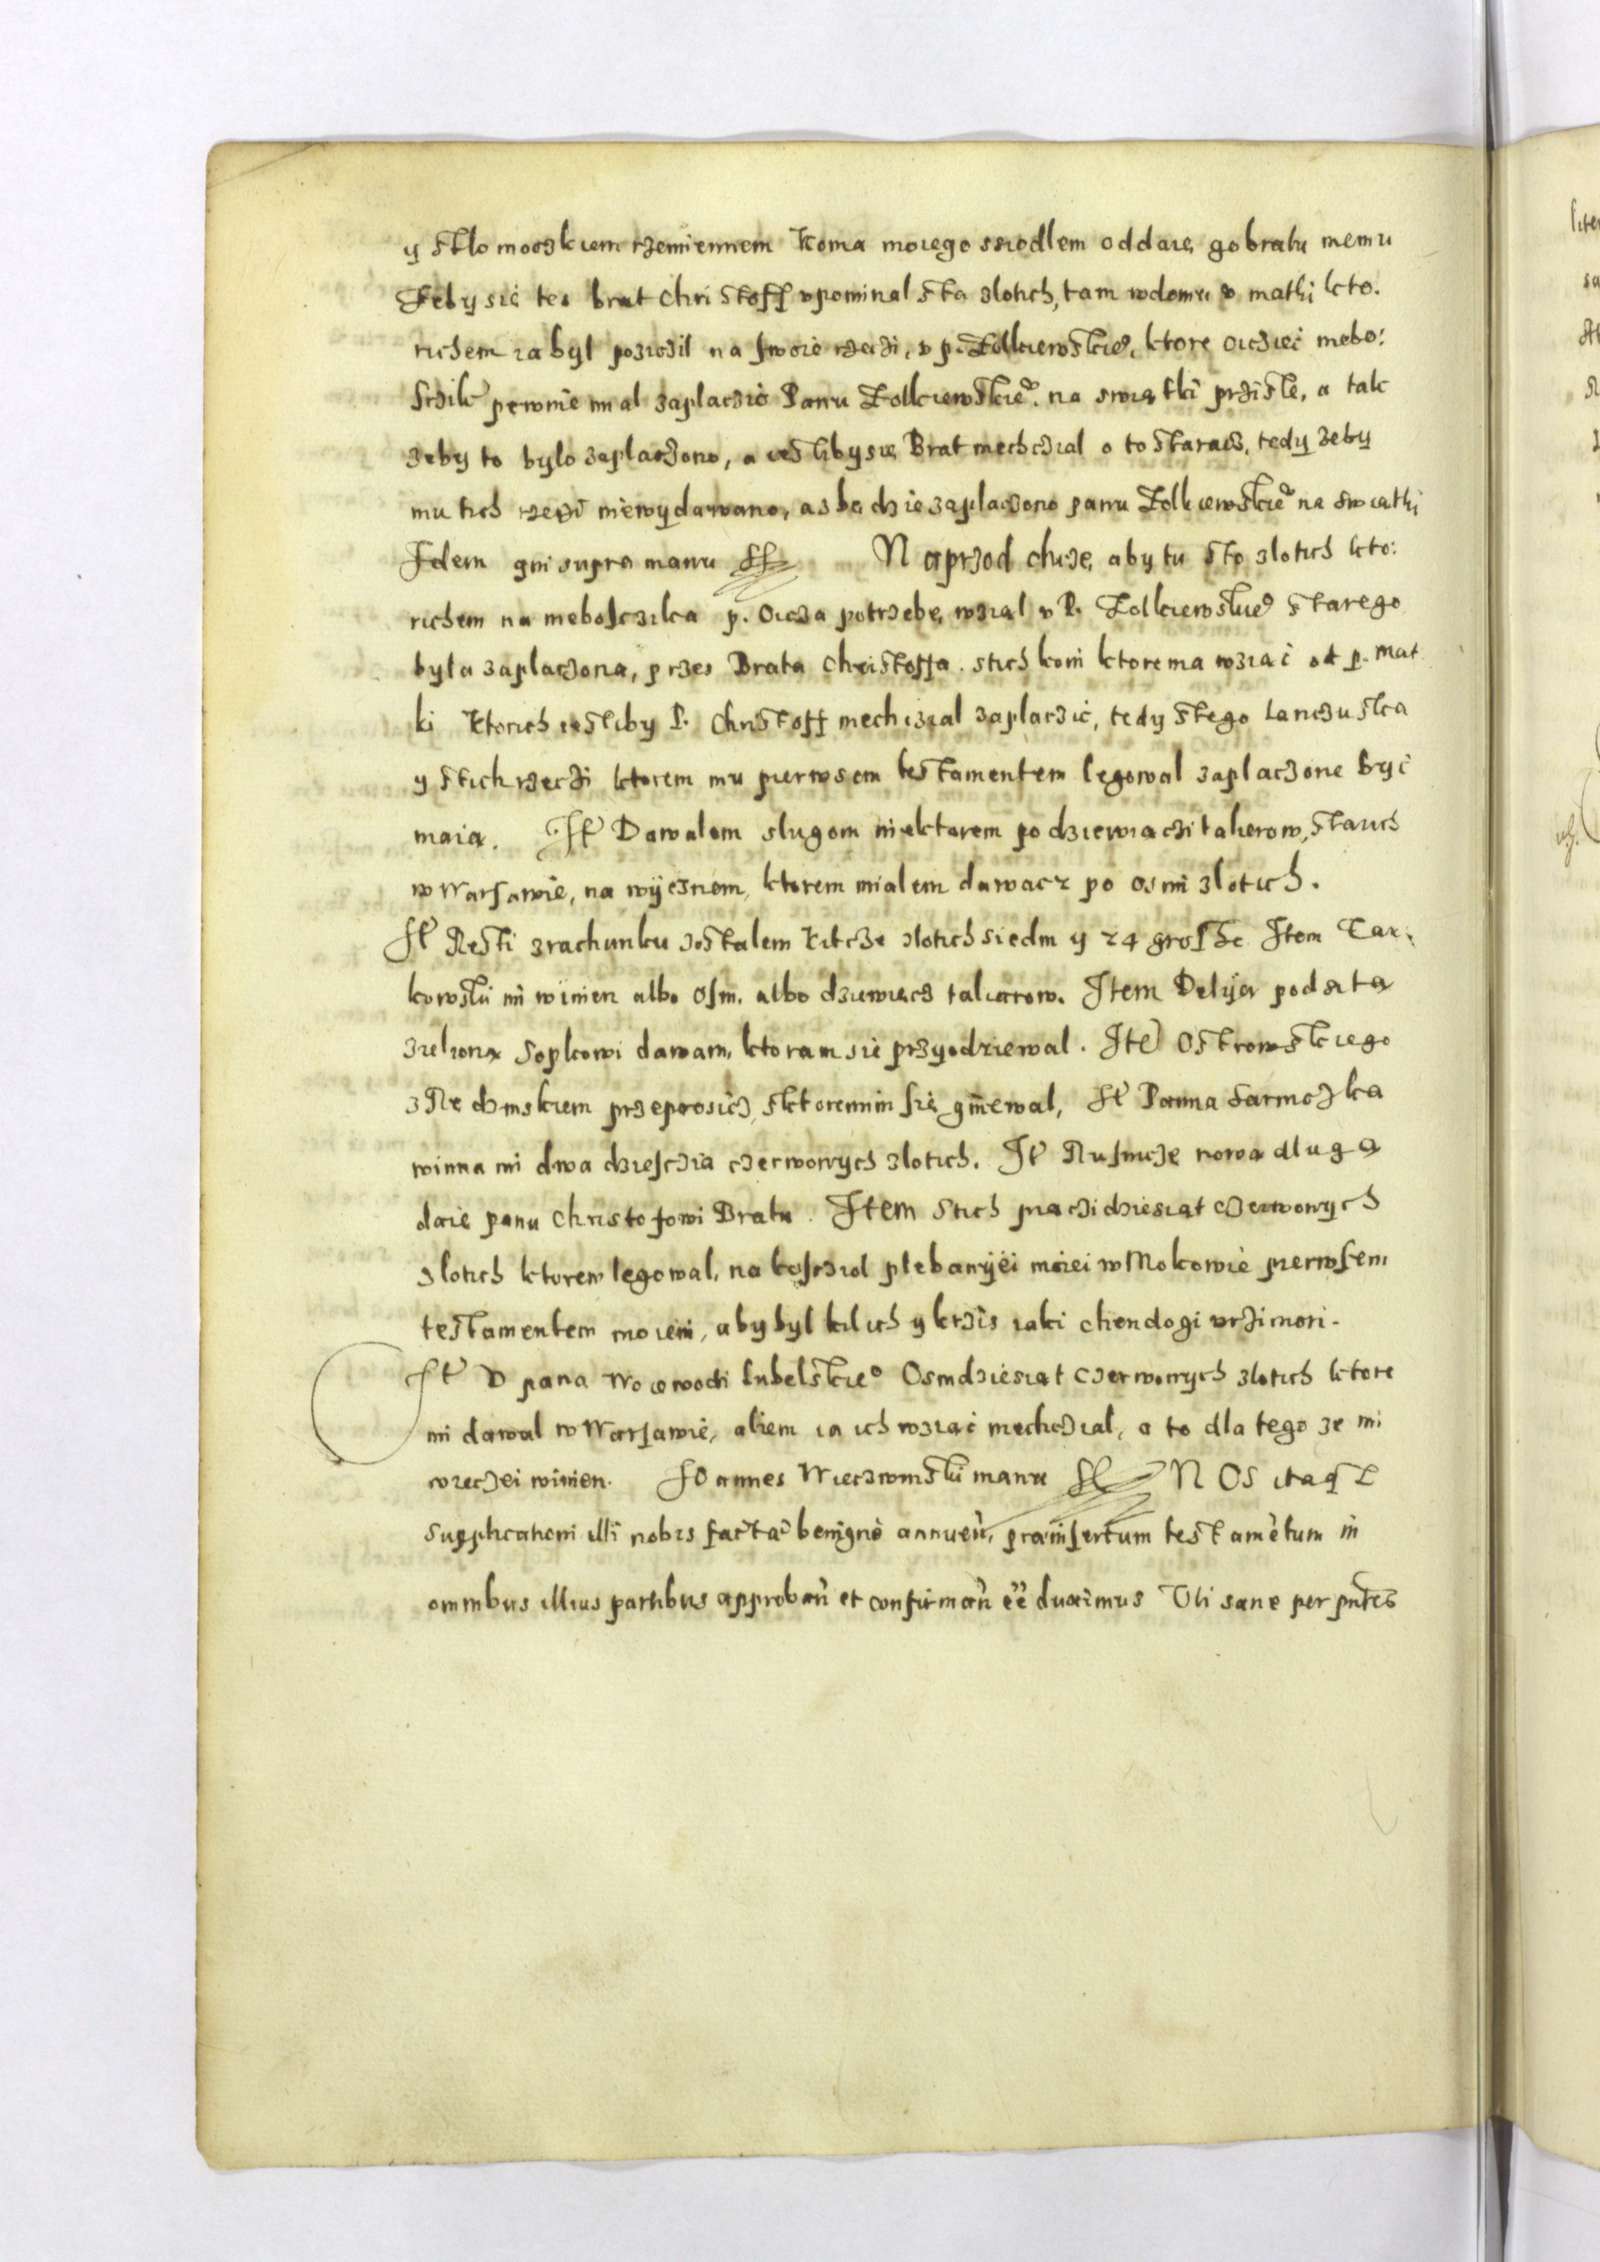 y stlo mooskiem rzemiennem koma moiego ssiodlem oddaie gobratu memu
Zeby sie tes brat Christoff vpominal sta zlotich, tam wdomu v mathi kto.
richem ia byl poziczil na swoie rzeczi, v p. Zolkiewskie°, ktore oicziec niebo:
sczik pewnie mial zaplaczic Panu Zolkiewskie° na swiątki prziste, a tak
zeby to bylo zaplaczono, a iestliby sie Brat niechczial o to staracz, tedy zeby
mu tich rzeczi niewydawano, as będzie zaplaczono panu Zolkiewskie° na swiathi
Idem qui supra manu Naprzod chcze, aby tu sto zlotich kto:
richem na nieboscika p. Oicza potrzebe, wzial v P. Zolkiewskie° starego
byla zaplaczona, przes Brata Christoffa. stich koni ktore ma wziac od p. mat
ki ktorich iestliby P. Christoff niechczial zaplaczic, tedy stego Lanczuska
y stich rzeczi ktorem mu pierwsem testamentem legowal zaplaczone byc
maia. It Dawalem slugom niektorem po dziewiaczi talierow, starich
w Warsawie, na wyiesnem, ktorem mialem dawacz po osmi zlotich.
It Resti zrachunku zostalem Kitcze zlotich siedm y 24 grosze Item Tar:
kowski mi winien albo osm, albo dziewiecz taliarow. Item Delija podsita
zieliona Sopkowi dawam, ktoram sie przyodziewal. Ite Ostrowskiego
z Rechinskiem przeprosicz, sktoremim sie gniewal, It Panna Sarnoczka
winna mi dwa dziesczia czerwonych zlotich. It Rusnicze nowa dluga
daie panu Christofowi Bratu. Item Stich piaczidziesiat czerwonych
zlotich ktorem legowal, na kosczol plebanyei moiei w Mokowie pierwsem
testamentem moiem, aby byl kilich y krzis iaki chendogi vrzinioni.
It V pana Woiewodi Lubelskie° Osmdziesiat czerwonych zlotich ktore
mi dawal w Warsawie, aliem ia ich wziac niechczial, a to dla tego ze mi
wieczei winien. Joannes Wieczwinski manu NOS itaq
Supplicationi illi nobis factae benigne annuen, praeinsertum testamẽtum in
omnibus illius partibus approbań et confirmań eẽ duximus Vti sane per pńtes